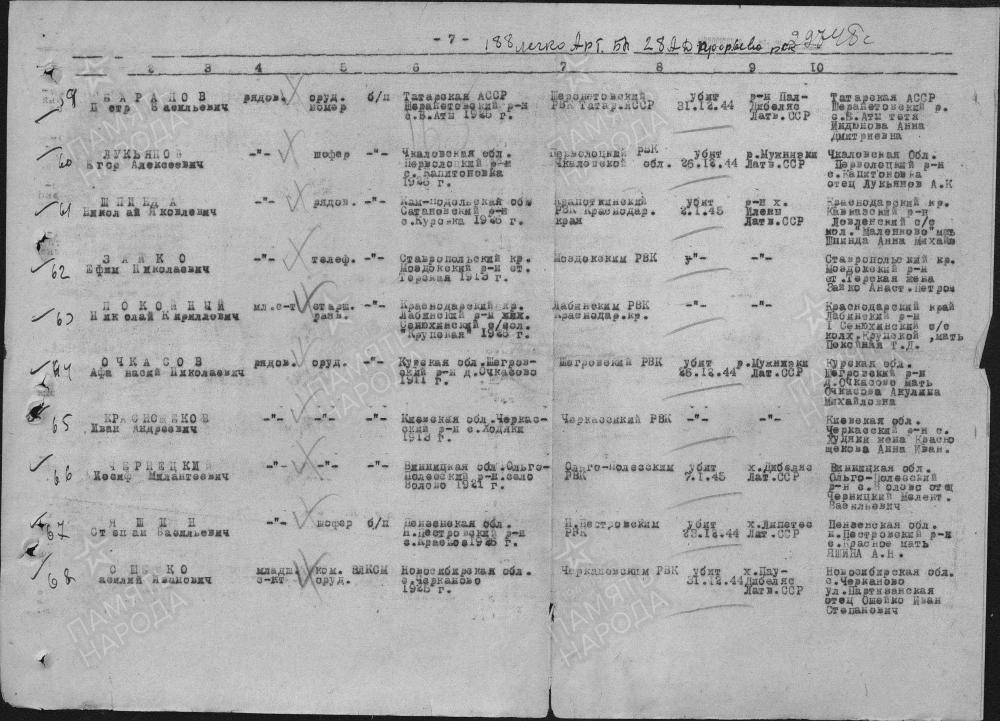 - 7 - 188 легко Арт. Бр 28 АД прорыва РГК 22748с
2 3 4 5 6 7 8 9 10
59 БАРАНОВ рядов. оруд. б/п Татарская АССР Шереметовский убит р-н Пал- Татарская АССР
Петр Васильевич номер Шереметовский р-н РВК Татар.АССР 31.12.44 Дибеляс Шереметовский р.
с.Б.Аты 1925 г. Латв.ССР с.Б.Аты тетя
Индюкова Анна
Дмитриевна
60 ЛУКЬЯНОВ -"- шофер -"- Чкаловская обл. Переволоцкий РВК убит р.Мужниэки Чкаловская Обл.
Егор Алексеевич Переволоцкий р-н Чкаловской обл. 26.12.44 Латв.ССР Переволоцкий р-н
с. Капитоновка с.Капитоновка
отец Лукьянов А.К
61 ШПИНДА -"- рядов. -"- Кам-Подольская обл Кропоткинский убит р-н х. Краснодарский кр.
Николай Яковлевич Сатановский р-н РВК Краснодар. 2.1.45 Кавказский р-н
с.Куровка края Латв.ССР с/с
кол."Маленково"мать
Шпинда Анна Михайл
62 ЗАЙКО -"- телеф. -"- Ставропольский кр. Моздокским РВК -"- -"- Ставропольский кр.
Ефим Николаевич Моздокский р-н ст. Моздокский р-н
Терская 1913 г. ст.Терская жена
Зайко Анаст.Петров
63 ПОКОЙНЫЙ мл.с-т старш. -"- Краснодарский кр. Лабинским РВК -"- -"- Краснодарский край
Николай Кириллович Лабинский р-н Краснодар.кр. Лабинский р-н
Сенюхинский с/кол. I Сенюхинский с/с
"Крупская" 1925 г. колх.Крупской ,мать
Покойная Т.Д.
64 ОЧКАСОВ рядов. оруд. -"- Курская обл.Щигров- Щигровский РВК убит р.Мужниэки Курская обл.
Афанасий Николаевич ский р-н д.Очкасово 26.12.44 Лат.ССР Щигровский р-н
1911 г. д.Очкасово мать
Очкасова Акулина
Михайловна
65 КРАСНОЩЕКОВ -"- -"- -"- Киевская обл.Черкас- Черкасский РВК -"- -"- Киевская обл.
Иван Андреевич ский р-н с.Ходяки Черкасский р-н с.
1913 г. Худяки жена Красно
щекова Анна Иван.
66 ЧЕРНЕЦКИЙ -"- -"- -"- Винницкая обл.Ольго- Ольго-Полесским убит х.Дибеляс Винницкая обл.
Иосиф Милантеевич Полесский р-н.село РВК 7.1.45 Лат.ССР Ольго-Полесский
Волово 1921 г. р-н с.Волово отец
Черницкий Мелент.
Васильевич
67 ЯШИН -"- шофер б/п Пензенская обл. Н.Пестровским убит х.Липстес Пензенская обл.
Степан Васильевич Н.Пестровский р-н РВК 23.12.44 Лат.ССР Н.Пестровский р-н
с.Красное 1925 г. с.Красное мать
ЯШИНА А.Н.
68 ОШЕЙКО младш. ком. ВЛКСМ Новосибирская обл. Черкановским РВК убит х.Пау- Новосибирская обл.
Василий Иванович с-кт оруд. с.Черканово 31.12.44 Дибеляс с.Черканово
1925 г. Латв.ССР ул.Партизанская
отец Ошейко Иван
Степанович
ПАМЯТЬ НАРОДА